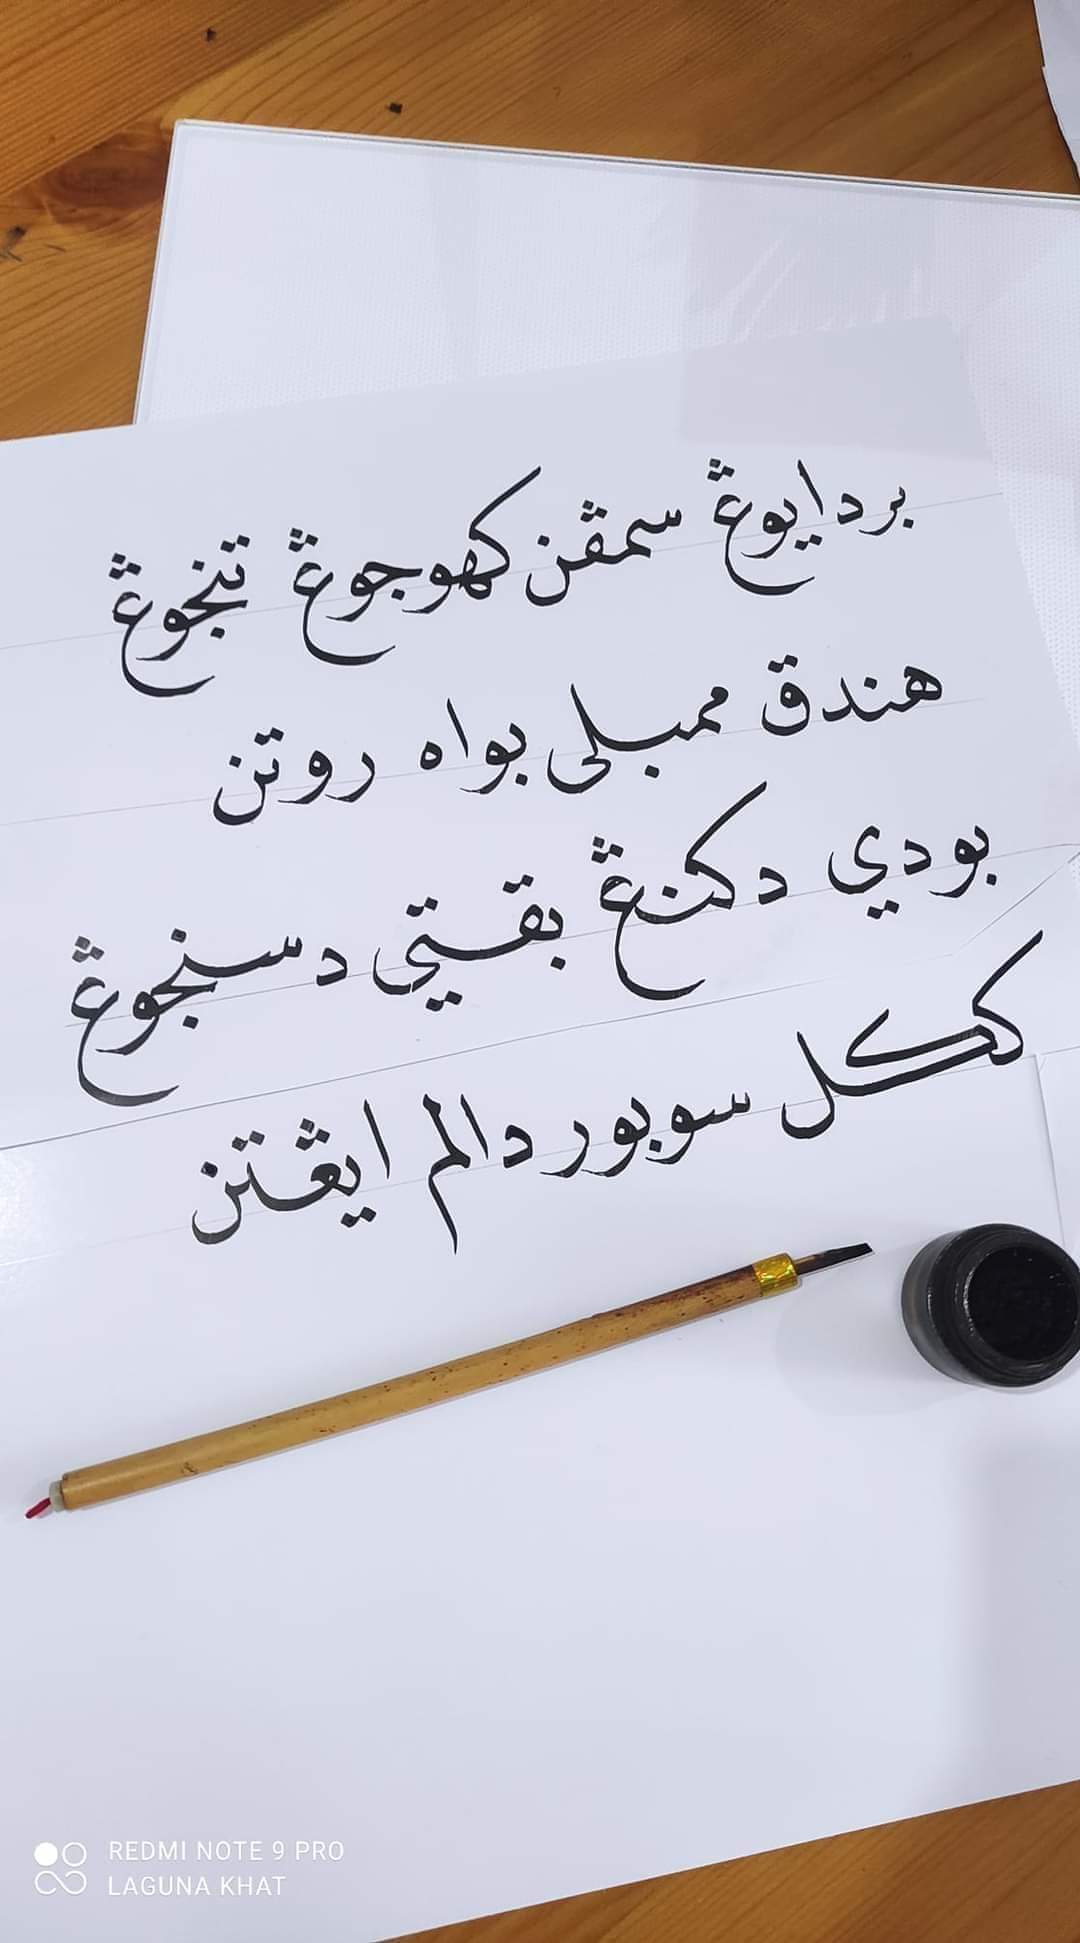 بردايوڠ سمڤن كهوجوڠ تنجوڠ
هندق ممبلى بواه روتن
بودي دكنڠ بقتي دسنجوڠ
ككل سوبور دالم ايڠتن
REDMI NOTE 9 PRO
LAGUNA KHAT